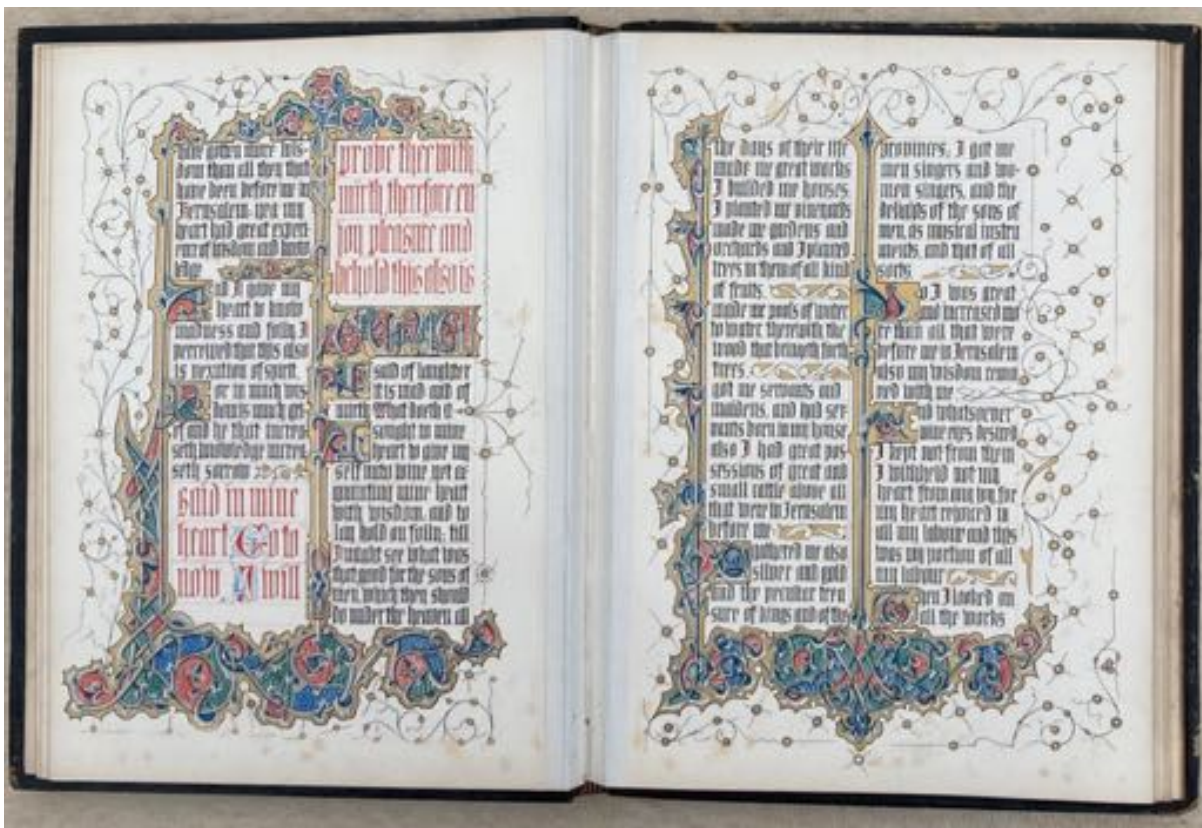 have gotten more wis-
dom than all they that
have been before me in
Jerusalem: yea my
heart had great experi
ence of wisdom and know
ledge
nd I gave my
heart to know
madness and folly I
perceived that this also
is vexation of spirit.
or in much wis
dom is much gri
ef and he that increa
seth knowledge increa
seth sorrow
said in mine
heart Go to
now I will
prove thee with
mirth therefore en
joy pleasure and
behold this also is
said of laughter
it is mad and of
mirth What doeth it
sought in mine
heart to give my
self unto wine yet ac
quainting mine heart
with wisdom, and to
lay hold on folly; till
I might see what was
that good for the sons of
men, which they should
do under the heaven all
the days of their life
made me great works
I builded me houses;
I planted me vineyards
made me gardens and
orchards and I planted
trees in them of all kind
of fruits.
made me pools of water
to water therewith the
wood that bringeth forth
trees.
got me servants and
maidens, and had ser
vants born in my house
also I had great pos
sessions of great and
small cattle above all
that were in Jerusalem
before me
gathered me also
silver and gold
and the peculiar trea
sure of kings and of the
provinces; I gat me
men singers and wo-
men singers, and the
delights of the sons of
men, as musical instru
ments, and that of all
sorts
So I was great
and increased mo
re than all that were
before me in Jerusalem
also my wisdom remai
ned with me
And whatsoever
mine eyes desired
I kept not from them
I withheld not my
heart from any joy for
my heart rejoiced in
all my labour and this
was my portion of all
my labour
Then I looked on
all the works